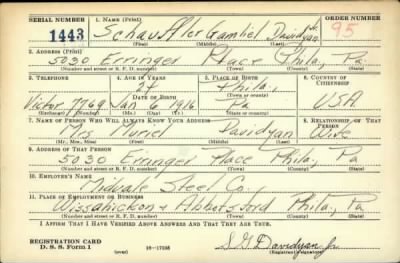 SERIAL NUMBER 1. NAME (Print) ORDER NUMBER
1443 Schauffler Gamliel Davidyan Jr. 95
(First) (Middle) (Last)
2. ADDRESS (Print)
5030 Erringer Place Phila, Pa
(Number and street or R. F. D. number) (Town) (County) (State)
3. TELEPHONE 4. AGE IN YEARS 5. PLACE OF BIRTH 6. COUNTRY OF CITIZENSHIP
24 Phila,
DATE OF BIRTH (Town or county)
Victor 7769 Jan 6 1916 Pa USA
(Exchange) (Number) (Mo.) (Day) (Yr.) (State or country)
7. NAME OF PERSON WHO WILL ALWAYS KNOW YOUR ADDRESS 8. RELATIONSHIP OF THAT PERSON
Mrs Muriel Davidyan Wife
(Mr., Mrs., Miss) (First) (Middle) (Last)
9. ADDRESS OF THAT PERSON
5030 Erringer Place Phila, Pa
(Number and street or R. F. D. number) (Town) (County) (State)
10. EMPLOYER'S NAME
Midvale Steel Co.
11. PLACE OF EMPLOYMENT OR BUSINESS
Wissahickon & Abbotsford Phila, Pa
(Number and street or R. F. D. number) (Town) (County) (State)
I AFFIRM THAT I HAVE VERIFIED ABOVE ANSWERS AND THAT THEY ARE TRUE.
REGISTRATION CARD
D. S. S. Form 1 (over) 16—17105 S G Davidyan Jr
(Registrant's signature)